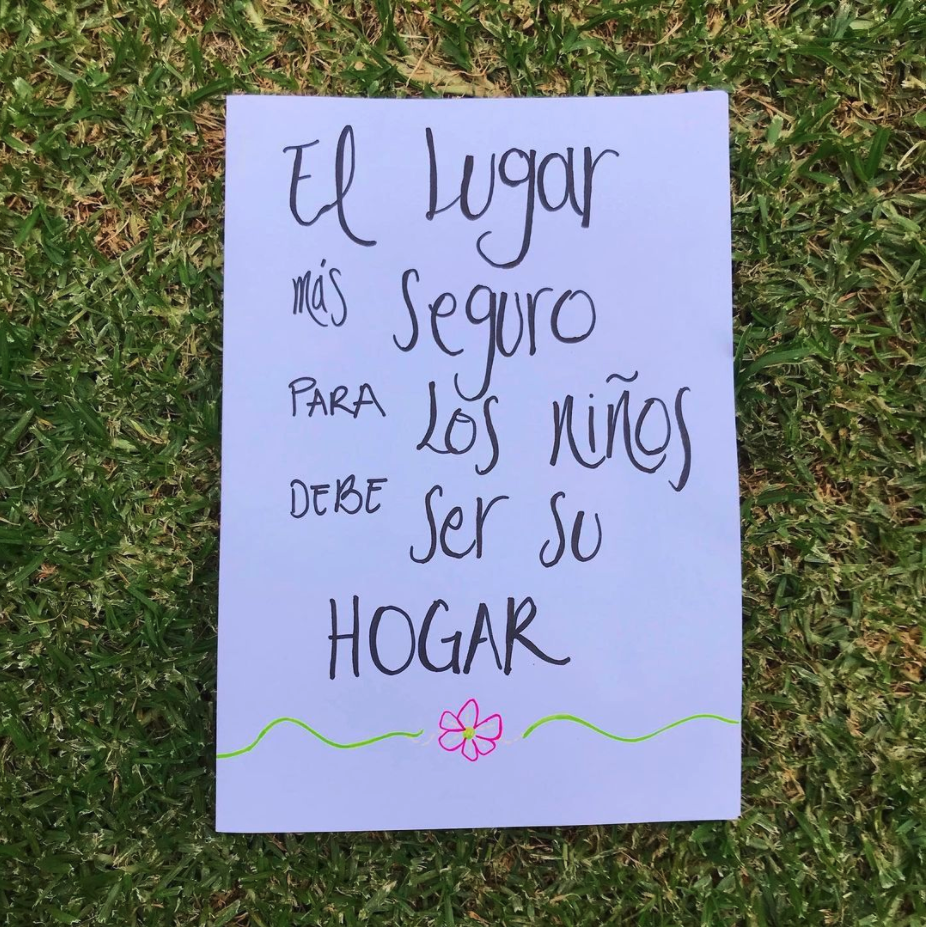 El Lugar
más Seguro
PARA Los niños
DEBE Ser Su
HOGAR